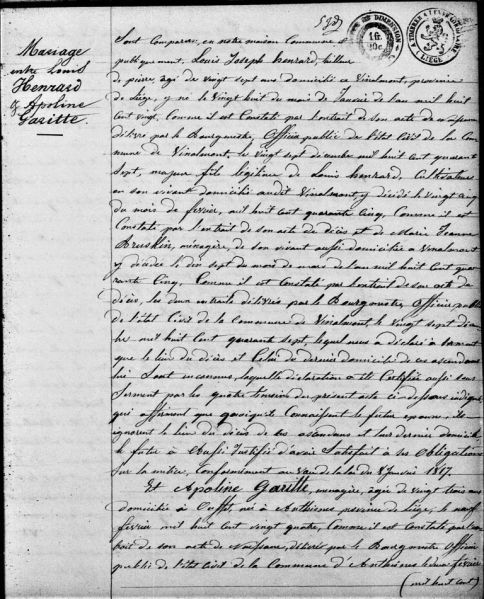 Mariage
entre Louis
Henrard
& Apoline
Garitte.
Sont comparus, en notre maison Commune &
publiquement, Louis Joseph henrard, tailleur
de pierre, agé de vingt sept ans domicilié à Vinalmont, province
de Liége, y né le vingt huit du mois de Janvier de l'an mil huit
cent vingt, Comme il est Constaté par l'extrait de son acte de naissance
délivré par le Bourgmestre, Officier public de l'état Civil de la Com
mune de Vinalmont, le vingt sept décembre mil huit cent quarante
sept, majeur, fils légitime de Louis henrard, Cultivateur
en son vivant domicilié audit Vinalmont, y décédé le vingt cinq
du mois de février, mil huit Cent quarante Cinq, Comme il est
Constaté par l'extrait de son acte de décès et de Marie Jeanne
ménagère, de son vivant aussi domiciliée à Vinalmont
y décédée le dix sept du mois de mars de l'an mil huit Cent qua
rante Cinq, Comme il est Constaté par l'extrait de son acte de
décès, les deux extraits délivrés par le Bourgmestre, Officier public
de l'état Civil de la Commune de Vinalmont, le vingt sept décem
bre mil huit Cent quarante sept, lequel nous a déclaré à serment
que le lieu du décès et Celui du dernier domicile de ses ascendans
lui sont inconnus, laquelle déclaration a été Certifiée aussi sous
serment par les quatre témoins du présent acte ci-dessous indiqués
qui affirment que quoiqu'ils Connaissent le futur époux, ils
ignorent le lieu du décès de ses ascendans et leur dernier domicile
le futur a aussi Justifié d'avoir Satisfait à ses Obligations
sur la milice, Conformément au de la loi du 8 Janvier 1817.
Et Apoline Garitte, ménagère, agée de vingt trois ans
domiciliée à née à Anthisnes province de Liége, le neuf
février mil huit Cent vingt quatre, Comme il est Constaté par l'ex
trait de son acte de Naissance, délivré par le Bourgmestre Officier
public de l'état Civil de la Commune d'Anthisnes le deux février
(mil huit cent)